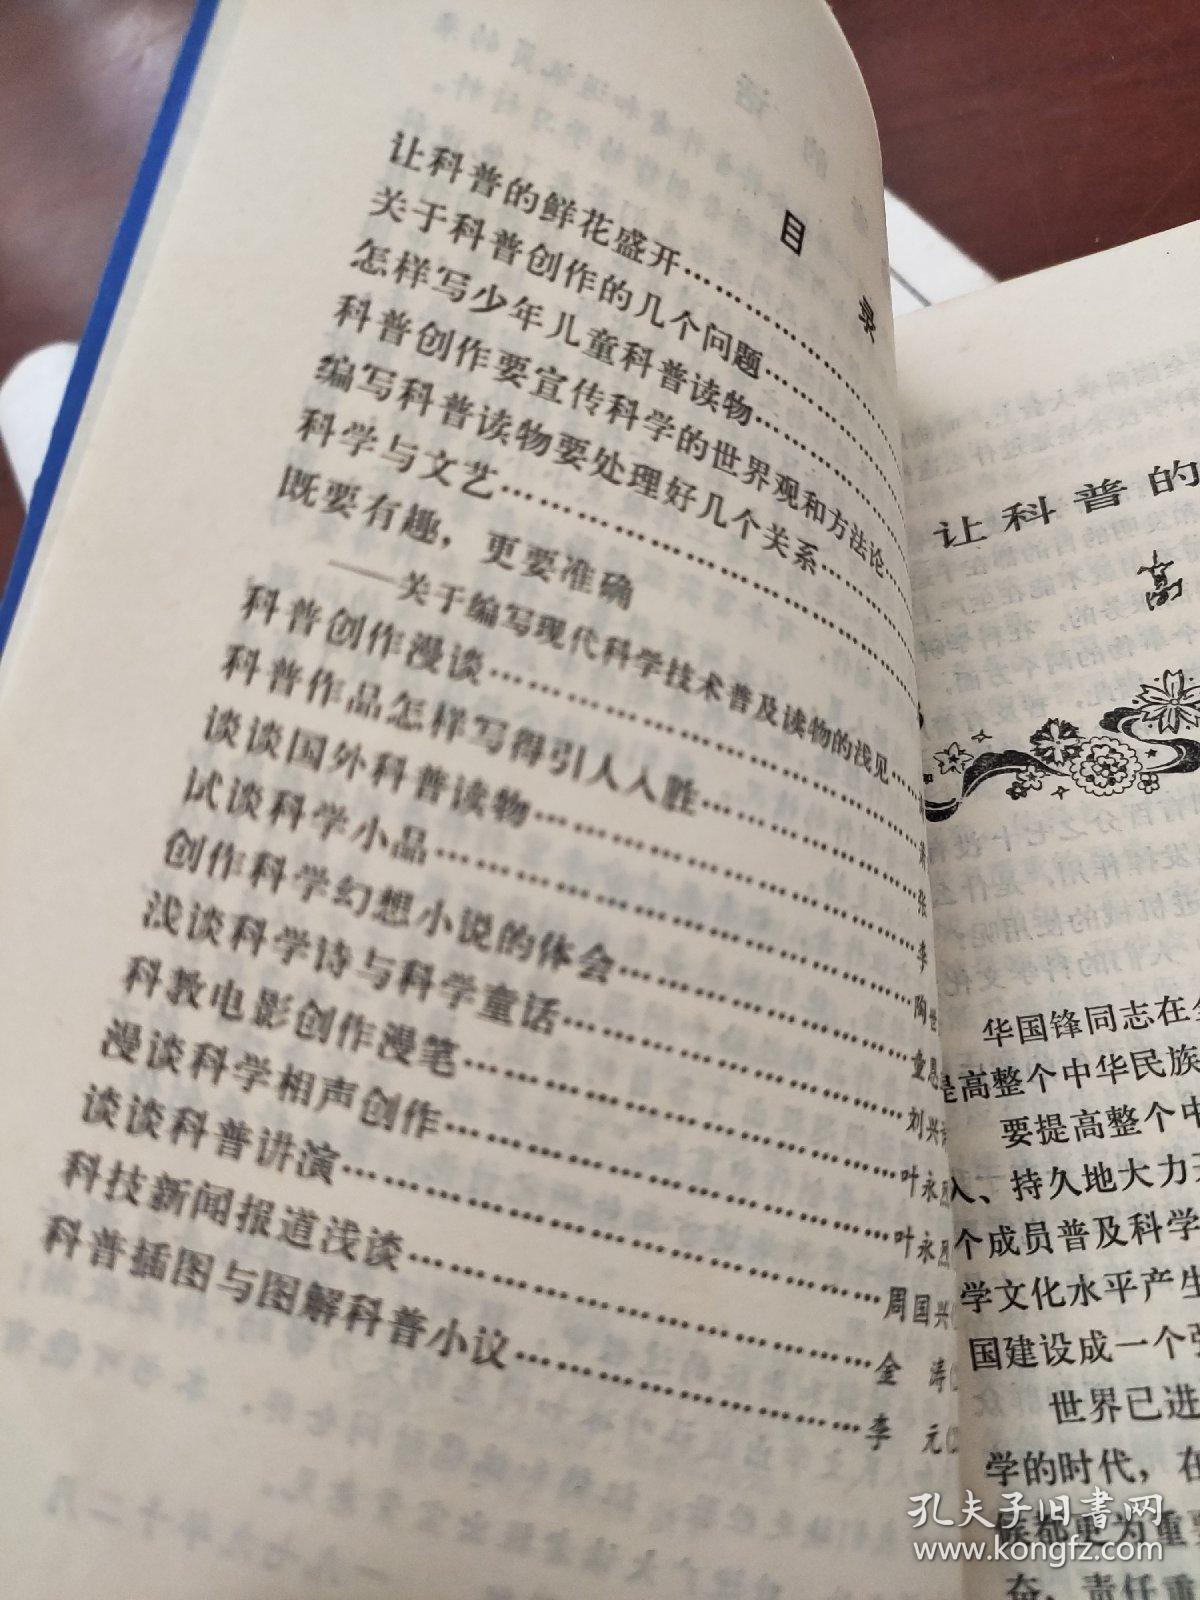 目 录
让科普的鲜花盛开
关于科普创作的几个问题
怎样写少年儿童科普读物
科普创作要宣传科学的世界观和方法论
编写科普读物要处理好几个关系
科学与文艺
既要有趣，更要准确
——关于编写现代科学技术普及读物的浅见
科普创作漫谈
科普作品怎样写得引人入胜
谈谈国外科普读物
试谈科学小品
创作科学幻想小说的体会
浅谈科学诗与科学童话
科教电影创作漫笔
漫谈科学相声创作
谈谈科普讲演
科技新闻报道浅谈
科普插图与图解科普小议
张
李
陶世
童恩
刘兴诗
叶永烈
叶永烈
周国兴
金 涛
李 元
让科普的
高
华国锋同志在全
高整个中华民族
要提高整个中
、持久地大力
个成员普及科学
学文化水平产生
国建设成一个
世界已进
学的时代，在
候都更为重要
奋，责任重
孔夫子旧书网
www.kongfz.com